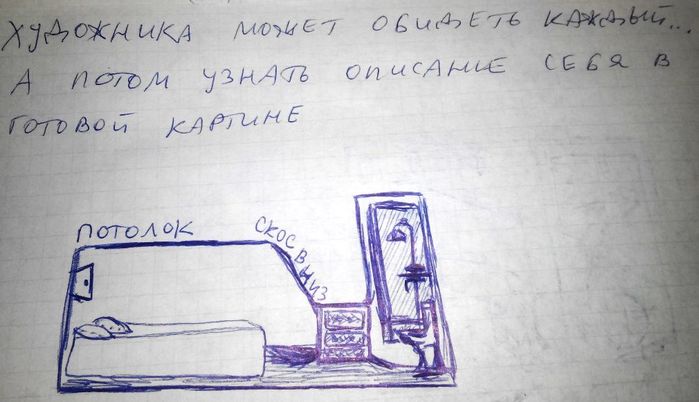 ХУДОЖНИКА МОЖЕТ ОБИДЕТЬ КАЖДЫЙ...
А ПОТОМ УЗНАТЬ ОПИСАНИЕ СЕБЯ В
ГОТОВОЙ КАРТИНЕ
ПОТОЛОК
СКОС ВНИЗ